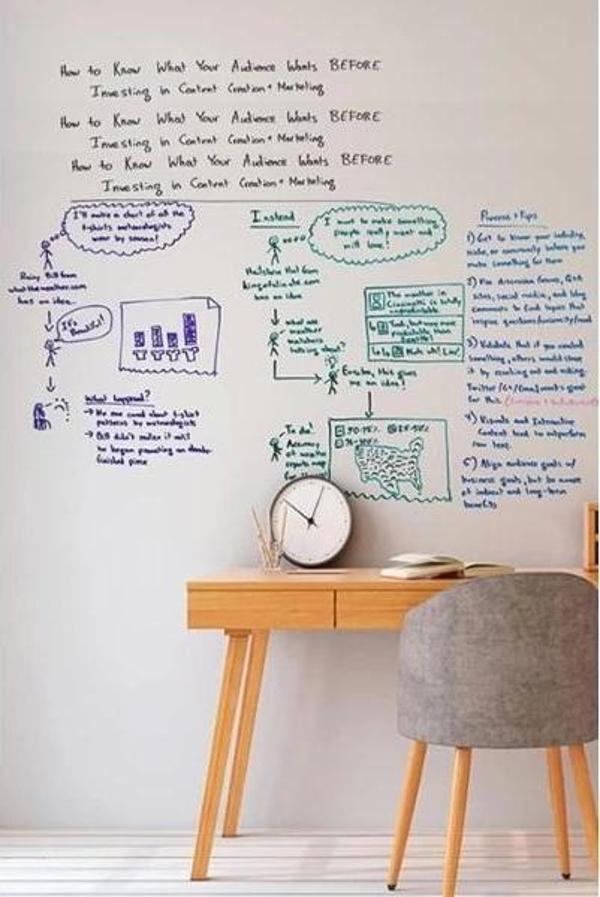 How to Know What Your Audience Wants BEFORE
Investing in Content Creation + Marketing
How to Know What Your Audience Wants BEFORE
Investing in Content Creation + Marketing
How to Know What Your Audience Wants BEFORE
Investing in Content Creation + Marketing
I'll make a chart of all the
t-shirts meteorologists
wear by season!
Rainy Bill from
whattheweather.com
has an idea...
It's
Beautiful!
What happened?
→ No one cared about t-shirt
patterns by meteorologists
→ Bill didn't realize it until
he began promoting an
finished piece
Instead
I want to make something
people really want and
will love!
from
has an idea...
what are
weather
talking about?
The weather in
Cincinnati is totally
unpredictable
Yeah, but way more
predictable than
Seattle!
Nuh uh! Liar!
this gives
me an idea!
To do:
Accuracy
of weather
reports map
Process + Tips
1) Get to know your industry,
niche, or community before you
make something for them
2) Use Q&A
sites, social media, and blog
comments to find topics that
inspire
3) Validate that if you created
something, others would share
it by reaching out and asking.
for this
4) Visuals and Interactive
Content tend to outperform
raw text.
5) Align audience goals w/
business goals, but be aware
of indirect and long-term
benefits